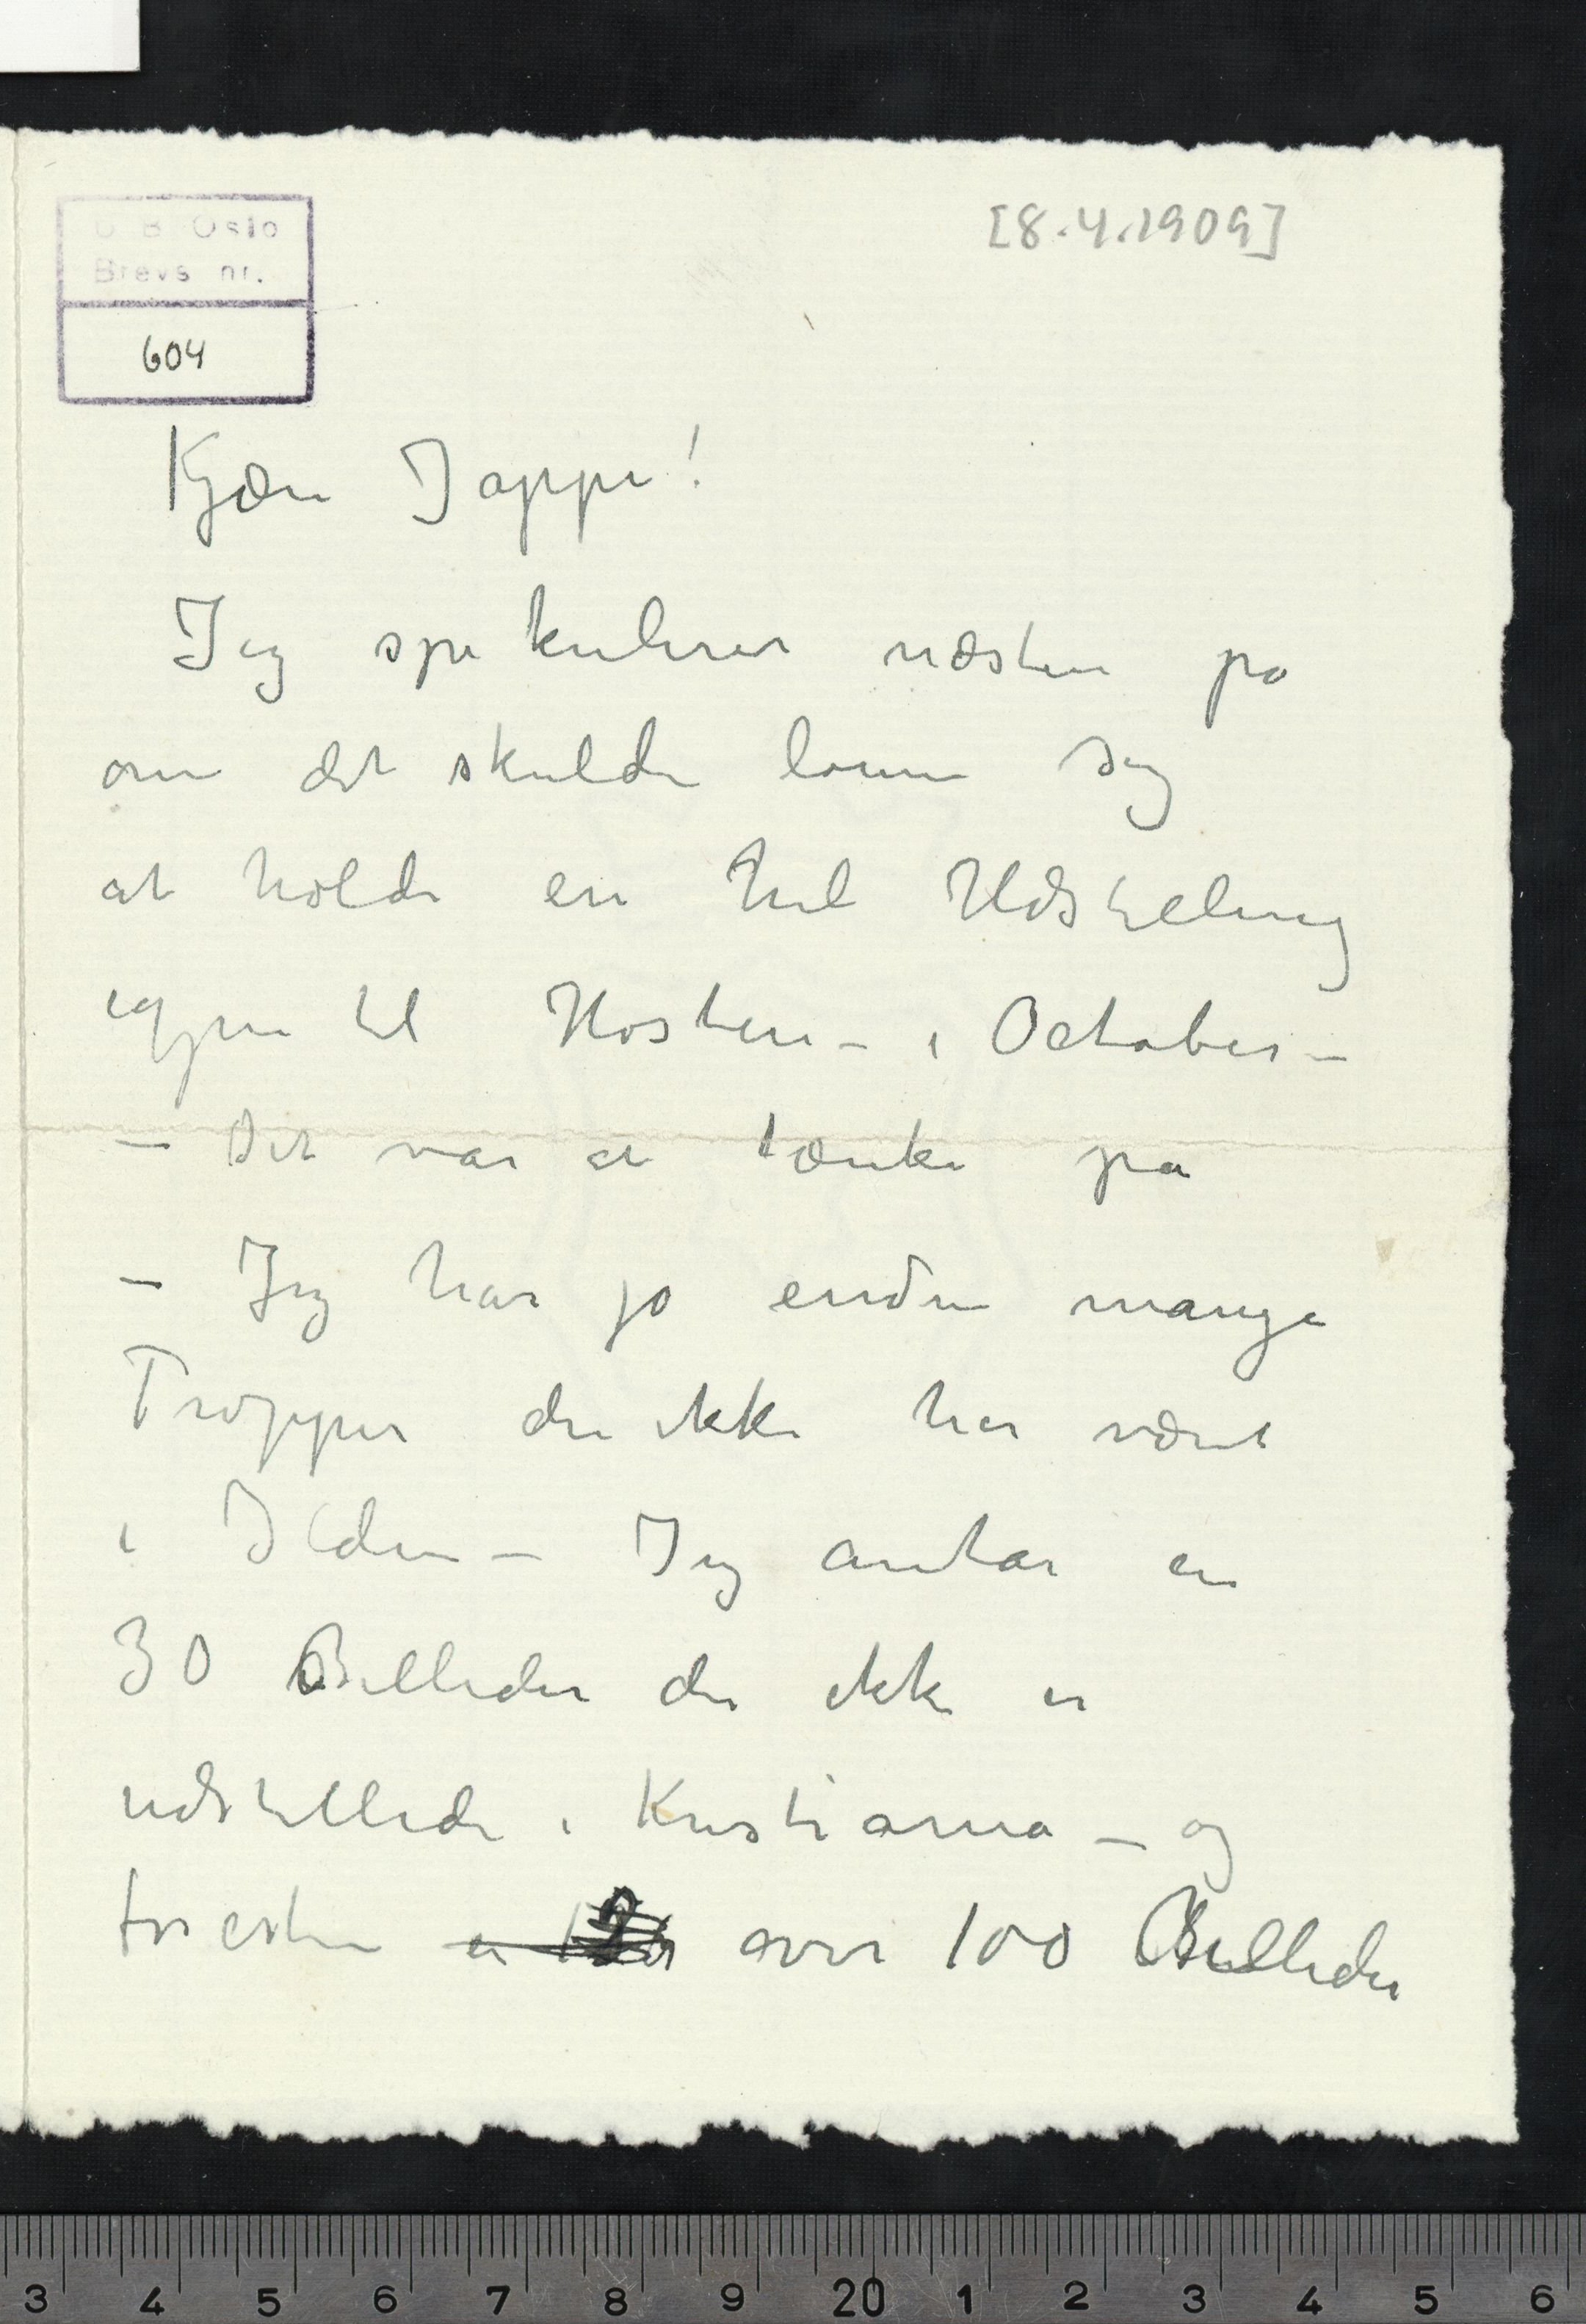 U B Oslo
Brevs nr.
604
[8.4.1909]
Kjære Jappe!
Jeg spekulerer næsten på
om det skulde lønne sig
at holde en hel Udstelling
igjen til Høsten – i October –
– Det var at tænke på
– Jeg har jo endnu mange
Tropper der ikke har været
i Ilden – Jeg antar en
30 Billeder der ikke er
udstillede i Kristiania – og
foresten over 100 Billeder
3 4 5 6 7 8 9 20 1 2 3 4 5 6